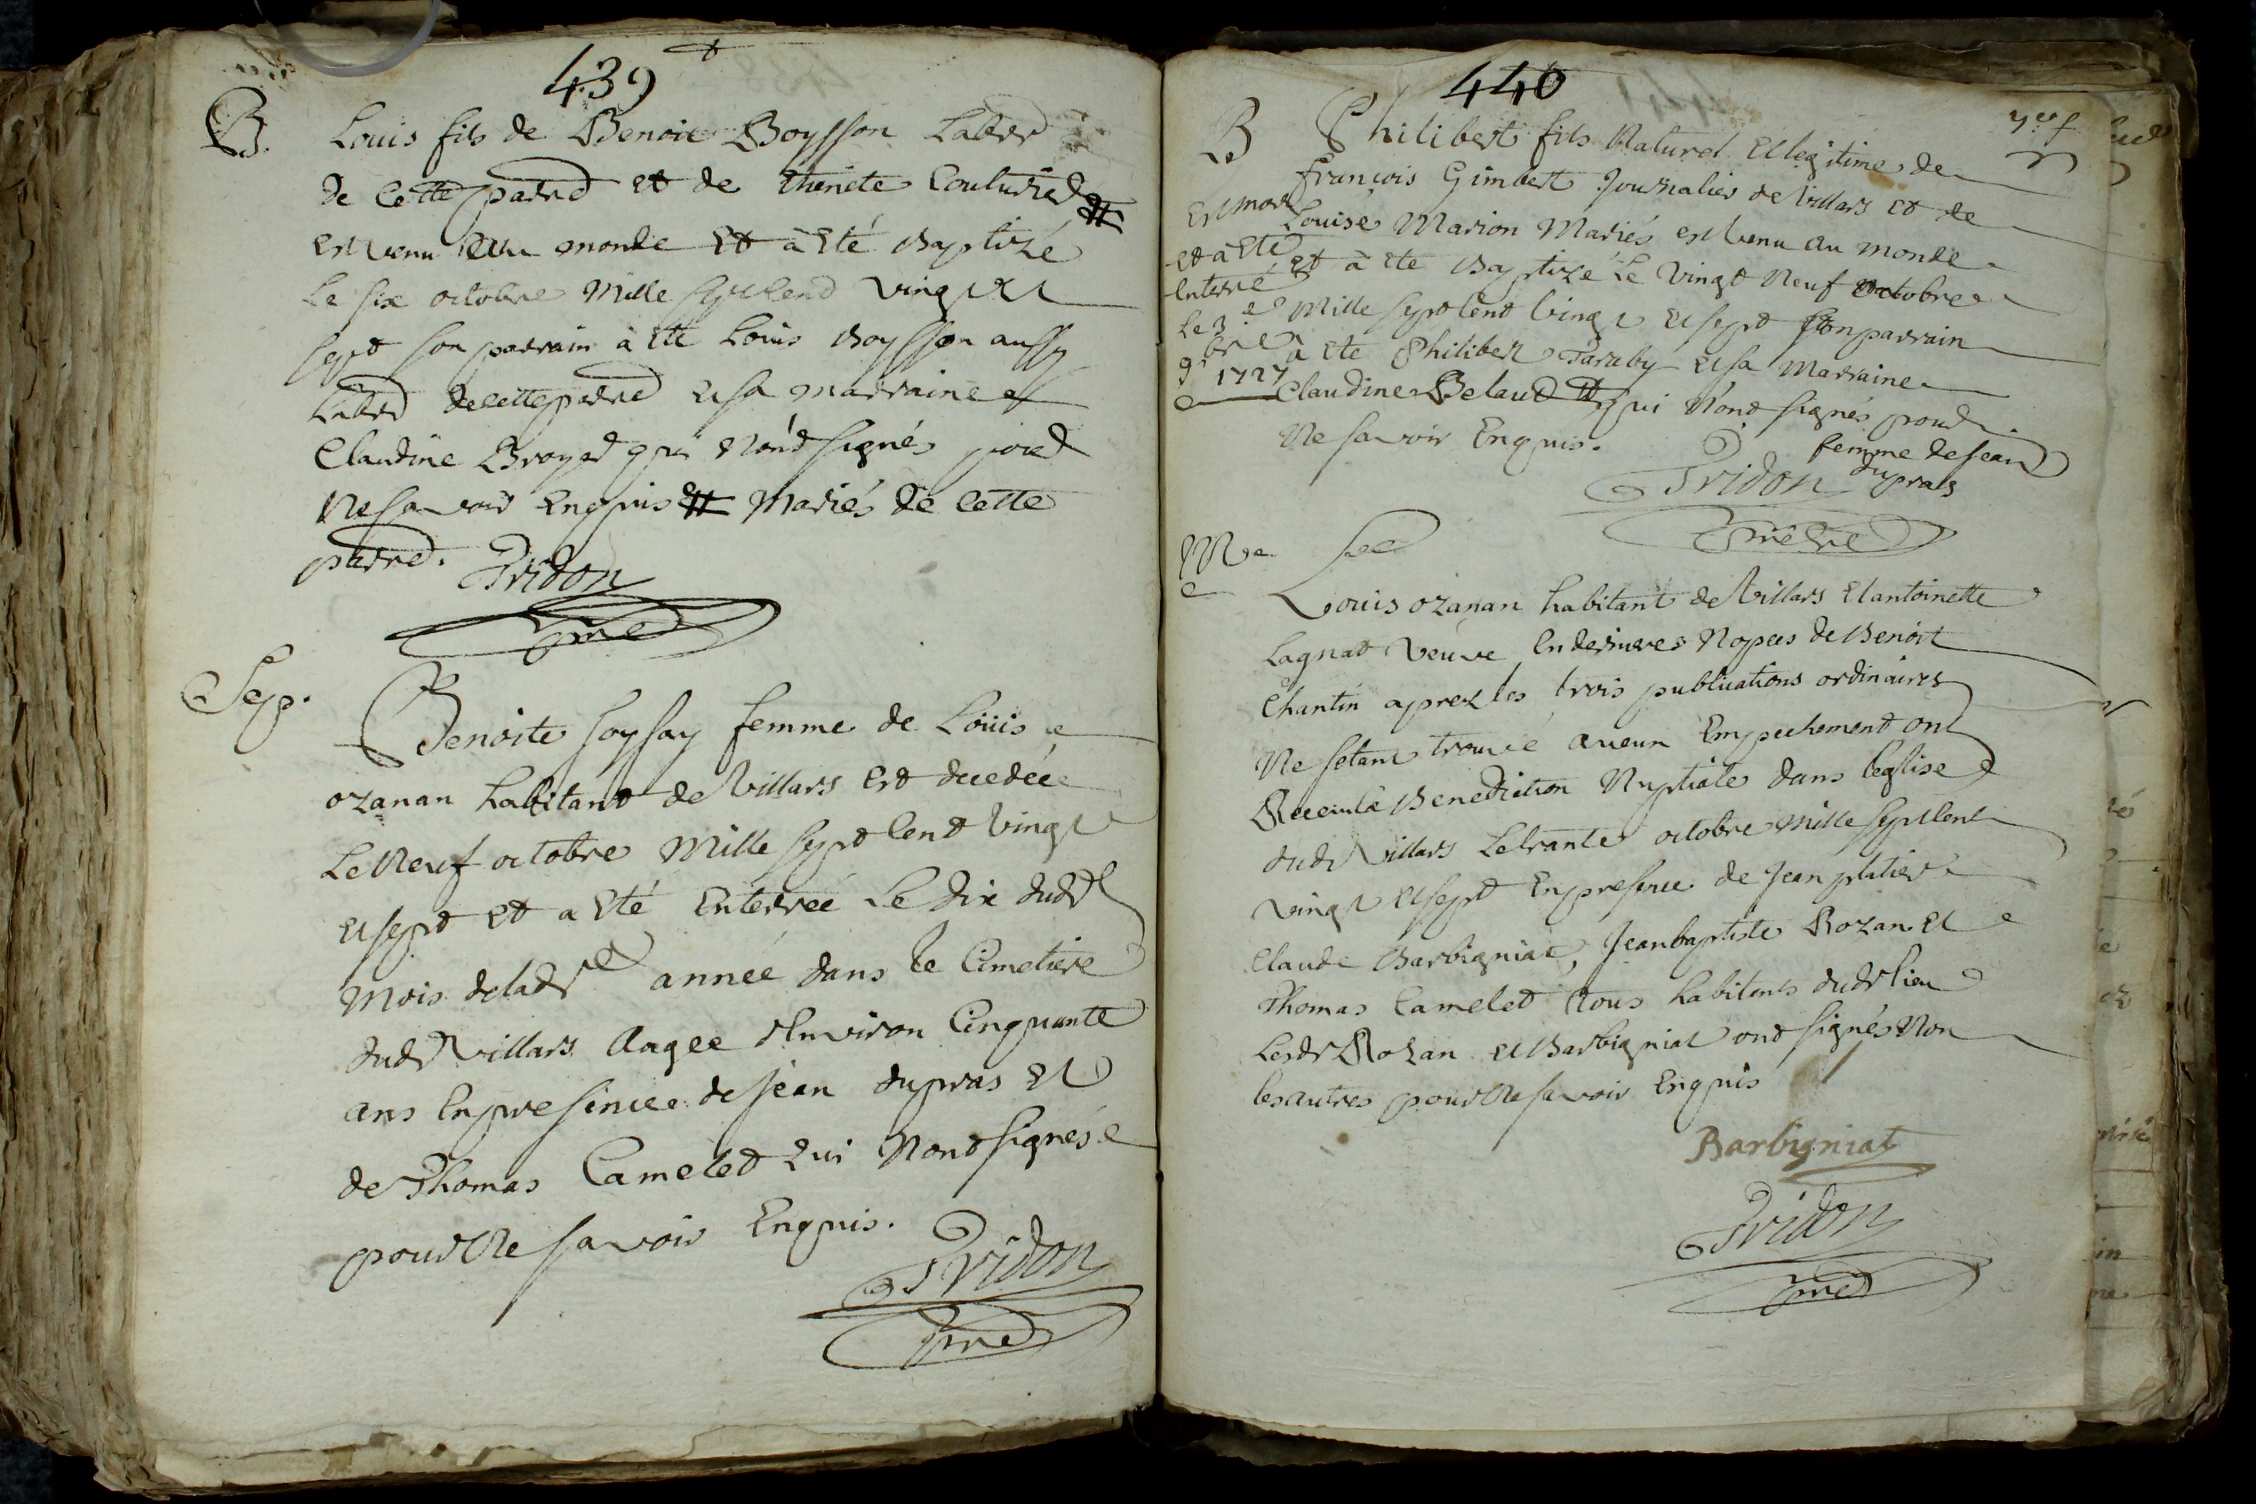 439
B. Louis fils de Benoit Boysson Labor
de cette parre et de thenete Couturier #
est venu au monde Et à Eté Baptizé
Le six octobre Mille sept Cend vingt et
sept son parrain à Eté Louis Boysson aussy
Labor de cette parre et sa marraine
Claudine Broyer qui n'ond signés pour
Ne savoir Enquis # Mariés de Cette
parre. Pridon
pre
Sep.
Benoite soysay femme de Loüis
ozanan habitant de Villars Est decedée
Le Neuf octobre Mille sept Cend vingt
et sept Et a Eté Enterreé Le dix dudt
mois deladte anneé dans le Cimetiere
dudt villars Aageé d'Environ Cinquante
ans En presence de Jean dupras Et
de Thomas Camelet qui N'ont signés
pour Ne savoir Enquis.
Pridon
pre
440
B Philibert fils Naturel et legitime de
françois Gimbert Journalier de Villars et de
Louise Marion Mariés est venu au monde
et à eté Baptizé Le vingt Neuf octobre
Mille sept Cend vingt et sept son parrain
à eté Philibert Taraby et sa Marraine
Claudine Belaud # qui N'ond signés pour
Ne savoir Enquis.
# femme de Jean
dupras
Est mort
et à Eté
Enterré
Le 3e
9bre
1727
Pridon
prestre
Me
Louis ozanan habitant de Villars et antoinette
Lagnat veuve En dernieres Nopces de Benoit
Chantin aprez les trois publications ordinaires
Ne setant trouvé aucun Empechement ont
Receu la Benediction Nuptiale dans l'eglise
dudt villars Le trante octobre mille sept Cent
vingt et sept En presence de Jean platier
Claude Barbigniat, Jean baptiste Rozan et
Thomas Camelet tous habitants dudt lieu
Lesdt Rozan et Barbigniat ond signés Non
les autres pour Ne savoir Enquis
Barbigniat
Pridon
pre